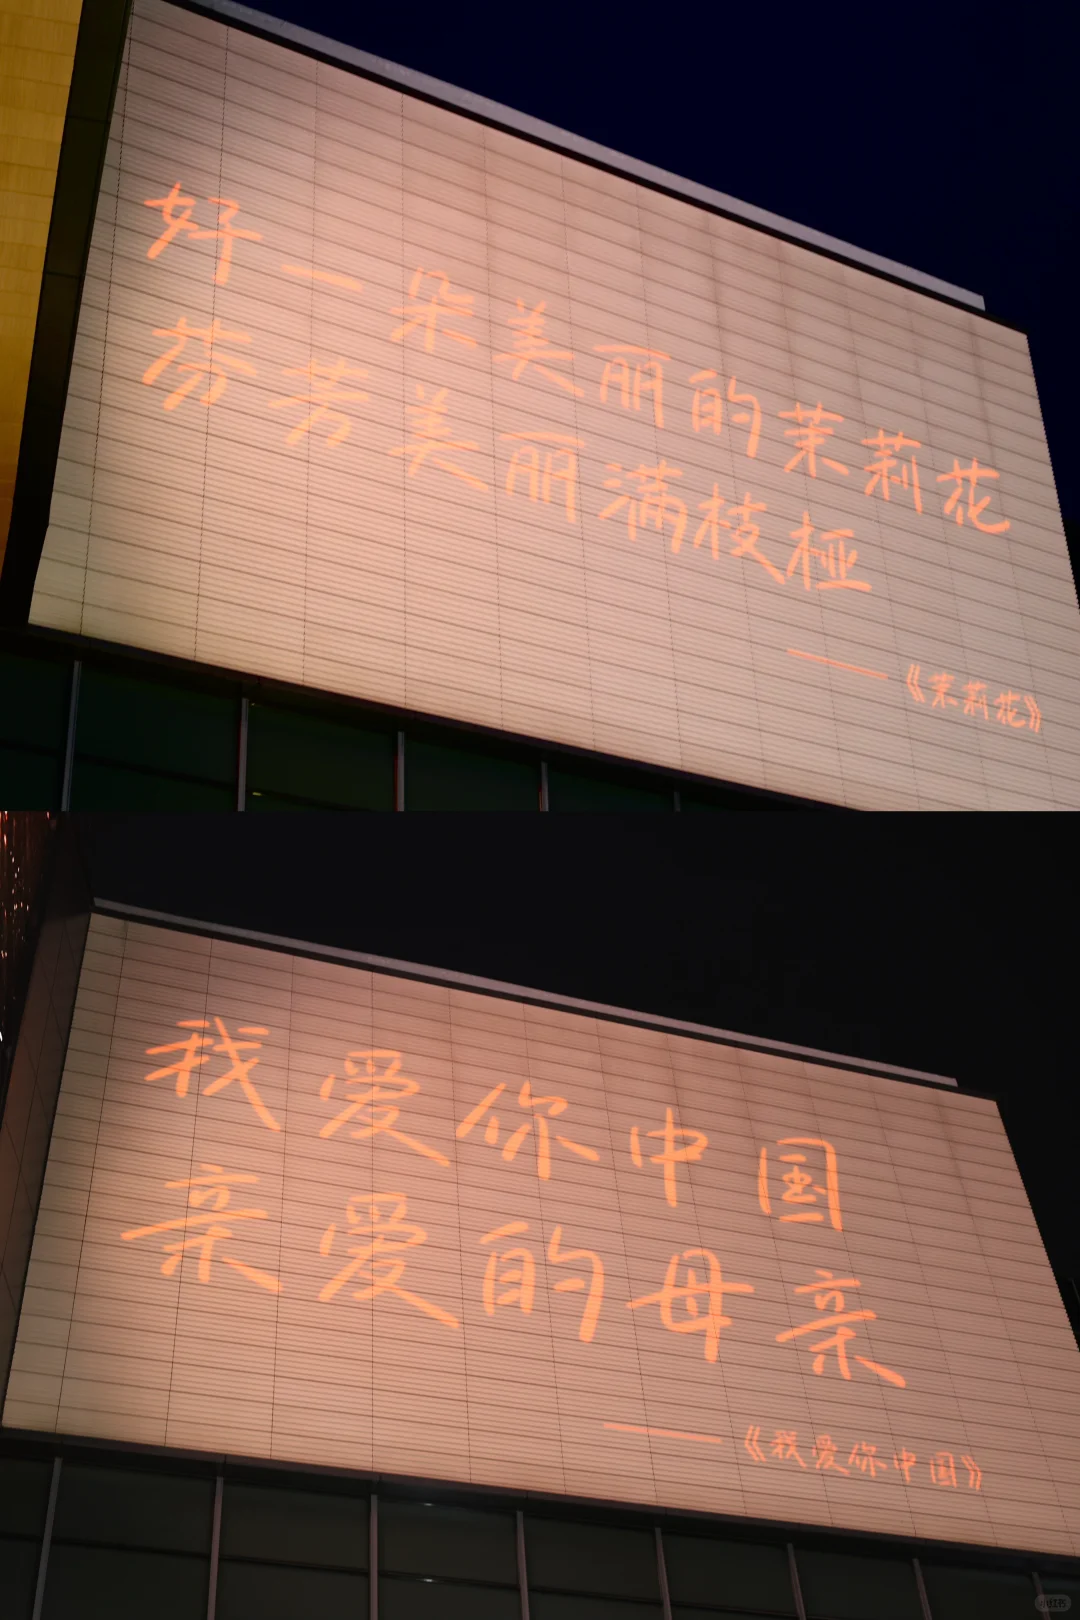 好一朵美丽的茉莉花
芬芳美丽满枝桠
——《茉莉花》
我爱你中国
亲爱的母亲
——《我爱你中国》
小红书